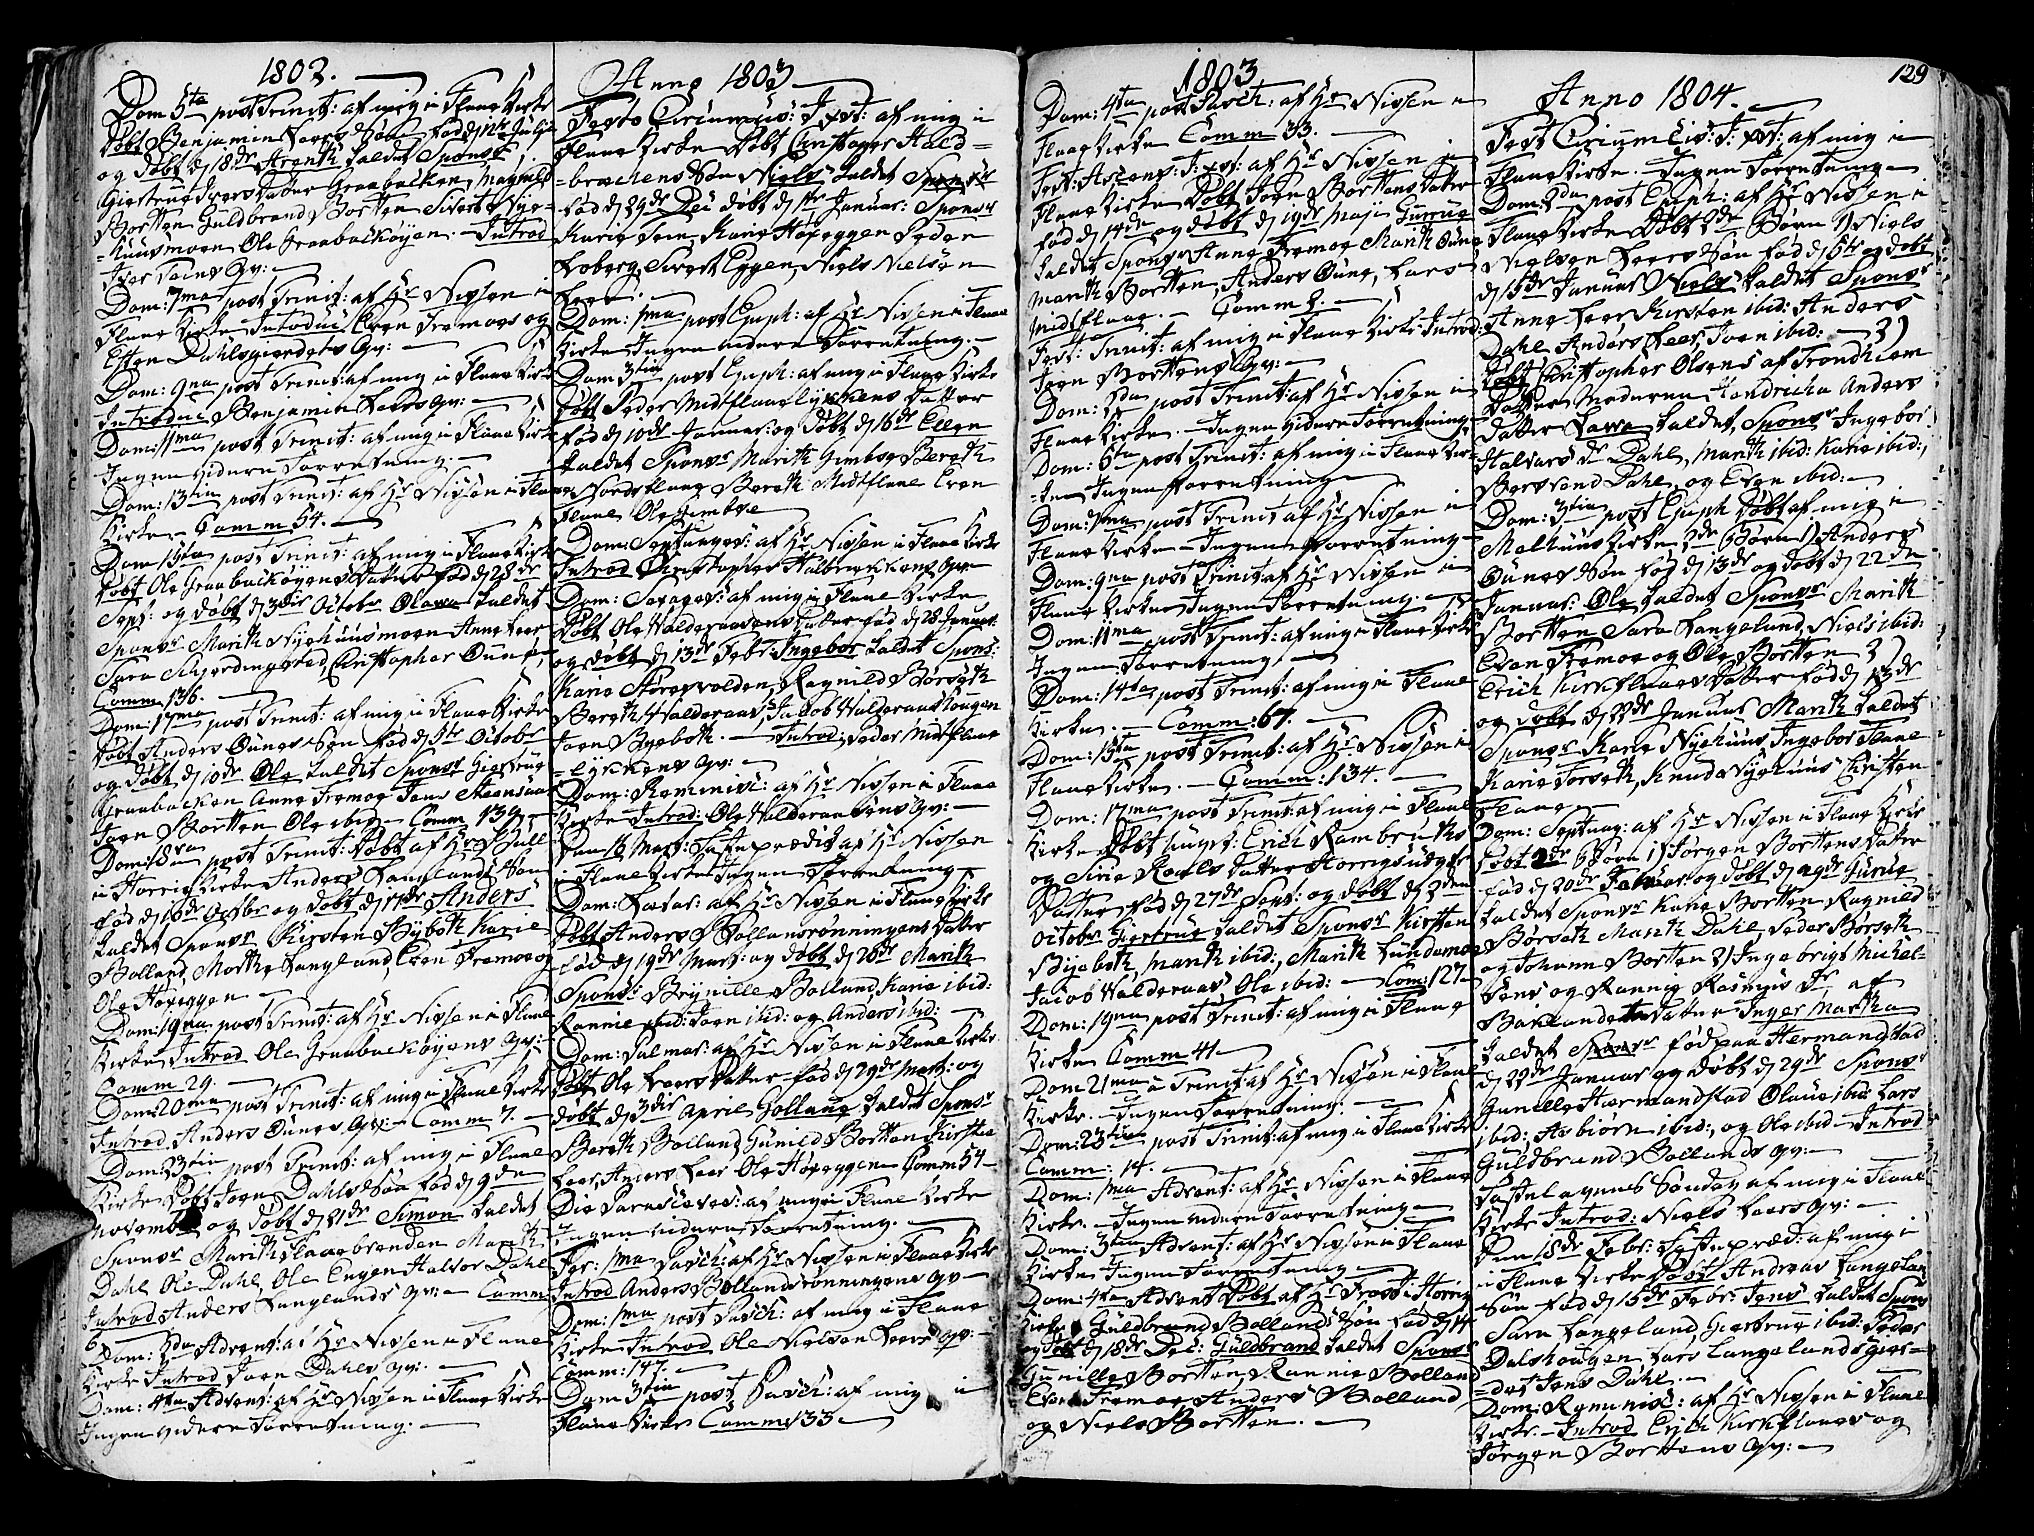 1802.
Dom 5ta post Trinit: af mig i Flaae Kirke
Døbt Benjamin Leers Søn fød d 12te Julii
og døbt d 18de Arenth kaldet Sponsr
Giertrue Leer Graabacken, Magnild
Bortten Guldbrand Bortten Sivert Nye-
-huusmoen Ole Graabackøyen. Introd
Iver Qv:
Dom: 7ma post Trinit: af Hr Nissen i
Flaae Kirke Introduc: Even Fremoes og
Esten Dahlsgierdets Qv:
Dom: 9na post Trinit: af mig i Flaae Kirke
Introduc Benjamin Leers Qv:
Dom: 11ma post Trinit: af mig i Flaae Kirke
Ingen videre Forretning.
Dom: 13tia post Trinit: af Hr Nissen i Flaae
Kirke Comm 54.
Dom 15ta post Trinit: af mig i Flaae Kirke
Døbt Ole Graabackøyens Datter fød d 28de
Sept: og døbt d 3die Octobr Olawa kaldet
Sponsr Marith Nyehuusmoen Anne Leer
Sara Skierdingstad, Christopher Øune,
Comm 136.
Dom: 17ma post Trinit: af mig i Flaae Kirke
Døbt Anders Øunes Søn fød d 5te Octobr
og døbt d 10de Ole kaldet Sponsr Giertrue
Graabacken Anne Fremoe Jens Steensaas
Joen Bortten Ole ibid Comm 139
Dom: 18va post Trinit: Døbt af Hr Bull
i Horrig Kirke Anders Langlands Søn
fød d 10de Octbr og døbt d 17de Anders
kaldet Sponsr Kirsten Bybøth Karie
Bolland, Marthe Langland, Even Fremoe og
Ole Høyeggen
Dom: 19na post Trinit: af Hr Nissen i Flaae
Kirke Introd Ole Graabackøyens Qv:
Comm 29.
Dom 20ma post Trinit: af mig i Flaae Kirke
Introd Anders Øunes Qv: Comm 7.
Dom: 23tia post Trinit: af mig i Flaae
Kirke Døbt Joen Dahls Søn fød d 9de
Novembr og døbt d 21de Simon kaldet
Sponsr Marith Flaaebrenden Marith
Dahl Oli Dahl, Ole Engen Halvor Dahl
Introd Anders Langlands Qv: Comm
6
Dom: 2da Advent: af Hr Nissen i Flaae
Kirke Introd Joen Dahls Qv:
Dom: 4ta Advent: af Hr Nissen i Flaae Kirke
Ingen videre Forretning.
Anno 1803
Festo Circumcis: J. Xst: af mig i
Flaae Kirke Døbt Christopher Hald-
-brechens Søn Niels kaldet Sponsr
fød d 29de Dec døbt d 1te Januar: Sponsr
Karie Karie Høyeggen Peder
Loberg, Sivert Eggen, Niels Nielsen
Leer.
Dom: 1ma post Epiph: af Hr Nissen i Flaae
Kirke Ingen videre Forretning.
Dom 3tia post Epiph: af mig i Flaae Kirke
Døbt Peder Midtflaaelyckens Datter
fød d 10de Januar: og døbt d 16de Ellen
kaldet Sponsr Marith Gimbse Bereth
Nordsflaae Bereth Midtflaae Even
Flaae Ole Gimbse
Dom: Septuages: af Hr Nissen i Flaae Kirke
Introd Christopher Halbrechens Qv:
Dom: Sexages: af mig i Flaae Kirke
Døbt Ole Walderaasens Datter fød d 28 Januar:
og døbt d 13de Febr: Ingebor kaldet Spons:
Karie Størevolden, Ragnild Børseth
Bereth Walderaas, Jacob Walderaas
Joen Byebøth. Introd: Peder Midtflaae
-lyckens Qv:
Dom: Reminisc: af Hr Nissen i Flaae
Kirke Introd: Ole Walderaasens Qv:
Den 16 Mart: Fasteprædik af Hr Nissen
i Flaae Kirke Ingen Forretning
Dom: Lætar: af Hr Nissen i Flaae Kirke
Døbt Anders Bollandsrønningens Datter
fød d 19de Mart: og døbt d 20de Marith
Spons: Brynille Bolland, Karie ibid:
Rannie ibid: Joen ibid: og Anders ibid:
Dom: Palmar: af Hr Nissen i Flaae Kirke
Døbt Ole Leers Datter fød d 29de Mart: og
døbt d 3die April Gollaug kaldet Sponsr
Bereth Bolland Gunild Bortten Kirsten
Leer, Anders Leer Ole Høyeggen Comm 54
Die Parasceves: af mig i Flaae Kirke
Ingen videre Forretning.
Fer: 1ma Pasch: af Hr Nissen i Flaae Kirke
Introd Anders Bollandsrønningens Qv
Dom: 1ma post Pasch: af mig i Flaae
Kirke Introd Ole Nielsen Leers Qv:
Comm: 147.
Dom 3tia post Pasch: af mig i
Flaae Kirke Comm 133
1803
Dom: 4ta post Pasch: af Hr Nissen i
Flaae Kirke Comm 33.
Fest: Ascens: J: Xst: af Hr Nissen i
Flaae Kirke Døbt Joen Borttens Datter
fød d 14de og døbt d 19de Maji Gurrue
kaldet Sponsr Anne Fremoe Marith Øune
Marith Bortten, Anders Øune, Lars
Midtflaae. Comm 2.
Fest: Trinit: af mig i Flaae Kirke Introd:
Joen Borttens Qv:
Dom: 2da post Trinit: af Hr Nissen i
Flaae Kirke. Ingen videre Forretning
Dom: 6ta post Trinit: af mig i Flaae Kir-
-ke Ingen Forretning
Dom: 7ma post Trinit af Hr Nissen i
Flaae Kirke Ingen Forretning
Dom: 9na post Trinit: af Hr Nissen i
Flaae Kirke Ingen Forretning.
Dom: 11ma post Trinit: af mig i Flaae Kirke
Ingen Forretning.
Dom: 14ta post Trinit: af mig i Flaae
Kirke. Comm: 67.
Dom: 15ta post Trinit: af Hr Nissen i
Flaae Kirke. Comm: 134.
Dom: 17ma post Trinit: af mig i Flaae
Kirke Døbt Erich Rambecks
og Sirie Roels Datter
Datter fød d 27de Sept: og døbt d 2den
Octobr Giertrue kaldet Sponsr Kirsten
Byebøth, Marith ibid:, Marith Lundemoe
Jacob Walderaas Ole ibid: Com: 127
Dom: 19na post Trinit: af mig i Flaae
Kirke Comm 41
Dom 21ma a Trinit af Hr Nissen i Flaae
Kirke. Ingen Forretning.
Dom: 23tia post Trinit: af mig i Flaae Kirke
Comm: 14.
Dom: 1ma Advent: af Hr Nissen i Flaae
Kirke. Ingen videre Forretning
Dom: 3tia Advent: af Hr Nissen i Flaae
Kirke Ingen Forretning
Dom: 4ta Advent Døbt af Hr Frost i Horrig
Kirke Guldbrand Bollands Søn fød d 14
og døbt d 18de Dec: Guldbrand kaldet Sponsr
Gunille Bortten Rannie Bolland
Even Fremoe Anders Bolland,
og Niels Bortten.
129
Anno 1804.
Fest Circumcis: J: Xst: af mig i
Flaae Kirke. Ingen Forretning
Dom: 2da post Epiph: af Hr Nissen i
Flaae Kirke Døbt 2de Børn 1) Niels
Nielsen Leers Søn fød d 5te og døbt
d 15de Januar Niels kaldet Sponsr
Anne Leer Kirsten ibid: Anders
Dahl Anders Leer, Joen ibid: 2)
Døbt Christopher Olsens af Trondhiem
Datter Moderen Hendricha Anders
Datter Lawa kaldet, Sponsr Ingebor
Halvors Dr Dahl, Marith ibid: Karie ibid:,
Bersvend Dahl, og Even ibid:
Dom: 3tia post Epiph Døbt af mig i
Melhuus Kirke 2de Børn 1) Anders
Øunes Søn fød d 13de og døbt d 22de
Januar: Ole kaldet Sponsr Marith
Bortten Sara Langeland, Niels ibid:
Even Fremoe og Ole Bortten 2)
Erich Kirkflaaes Datter fød d 13de
og døbt d 22de Januar Marith kaldet
Sponsr Karie Nyehuus, Ingebor Flaae
Karie Forseth, Knud Nyehuus Christen
Flaae.
Dom: Septuag: af Hr Nissen i Flaae Kirke
Døbt 2de Børn 1) Jørgen Borttens Datter
fød d 20de Januar og døbt d 29de Gurue
kaldet Sponsr Karie Bortten Ragnild
Børseth Marith Dahl, Peder Børseth
og Johann Bortten 2) Ingebrigt Michel-
sens og Ranni Rasmus Dr af
Baklandet Datter Inger Martha
kaldet Sponsr fød paa Hermanstad
d 22de Januar og døbt d 29de Sponsr
Gunille Hermandstad Olaue ibid: Lars
ibid:, Asbiørn ibid:, og Ole ibid Introd
Guldbrand Bollands Qv:
Fastelagens Søndag af mig i Flaae
Kirke Introd: Niels Leers Qv:
Den 15de Febr: Fastepræd: af mig i
i Flaae Kirke Døbt Andreas Langelan
Søn fød d 15de Febr: Jens kaldet Spons
Sara Langeland Giertrue ibid: Peder
Dalshougen Lars Langelandsgier-
-det Jens Dahl.
Dom: Reminisc: af Hr Nissen i Flaae
Kirke. Introd Erich Kirkflaaes og
Jørgen Borttens Qv: